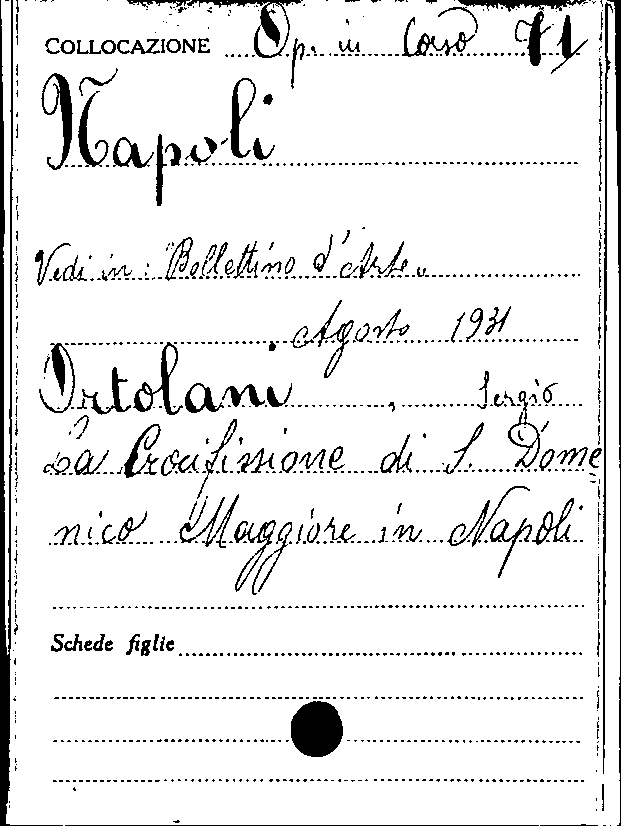 COLLOCAZIONE Op. in Corso 71
Napoli
Vedi in: "Bollettino d'Arte"
Agosto 1931
Ortolani, Sergio
La Crocifissione di S. Dome
nico Maggiore in Napoli
Schede figlie